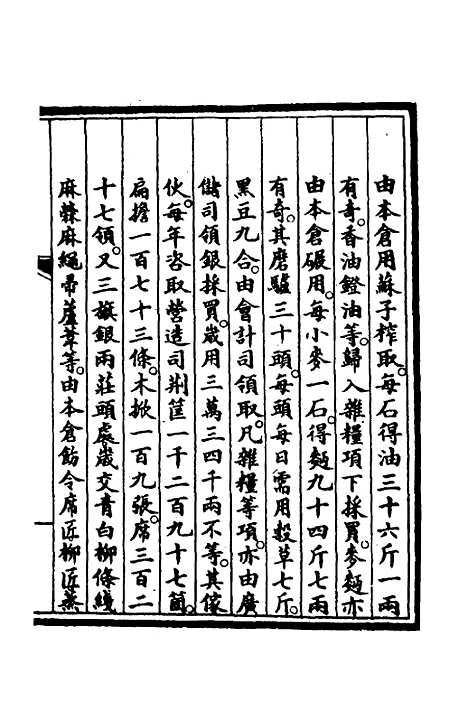 由本倉用蘇子榨取。每石得油三十六斤一兩
有奇。香油鐙油等。歸入雜糧項下採買。麥麪亦
由本倉碾用。每小麥一石。得麪九十四斤七兩
有奇。其磨驢三十頭。每頭每日需用穀草七斤。
黑豆九合。由會計司領取。凡雜糧等項。亦由廣
儲司領銀採買。歲用三萬三四千兩不等。其傢
伙。每年咨取營造司荆筐一千二百九十七箇。
扁擔一百七十三條。木掀一百九張。席三百二
十七領。又三旗銀兩莊頭處。歲交青白柳條綫
麻蔴繩帚蘆葦等。由本倉飭令席匠柳匠蒸